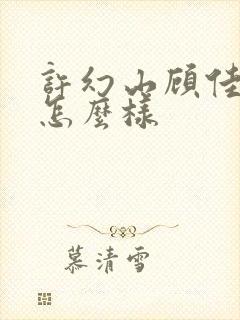 許幻山顾佳
怎麼樣
慕清雪